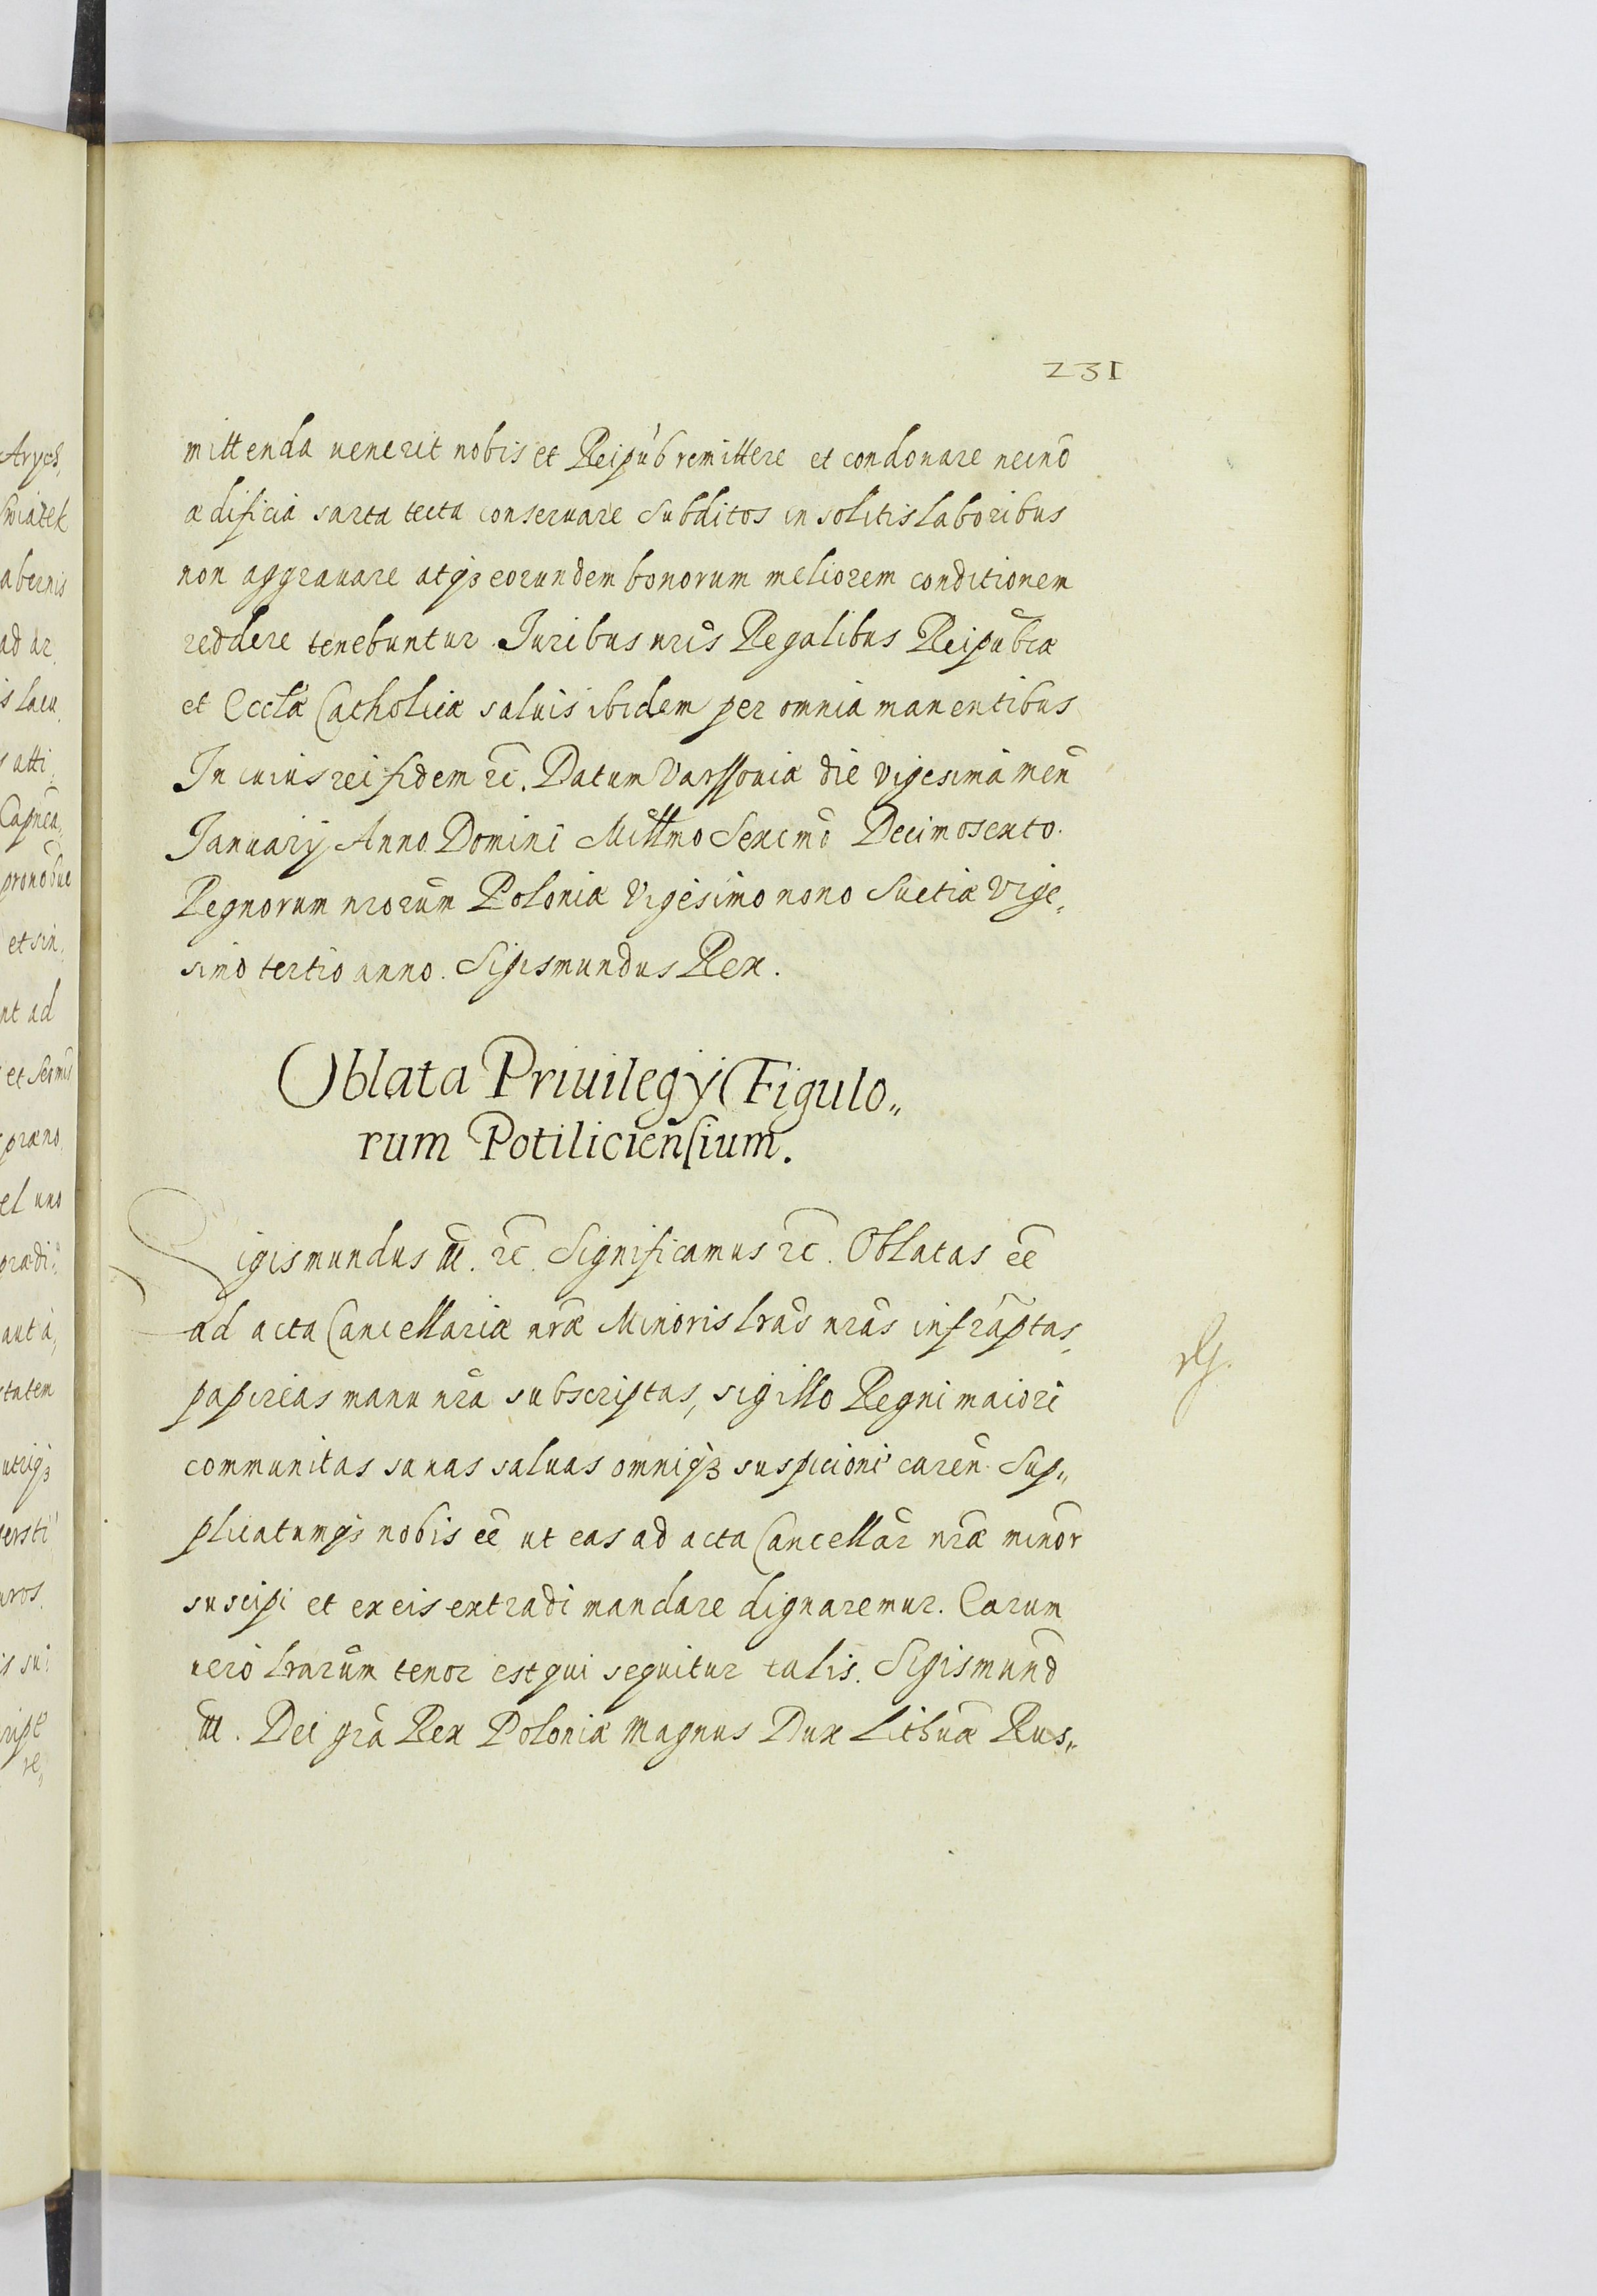 231
mittenda uenerit nobis et Reipub remittere et condonare necnō
ædificia sarta tecta conseruare Subditos in solitis laboribus
non aggrauare atqз eorundem bonorum meliorem conditionem
reddere tenebuntur. Iuribus nris̄ Regalibus Reipub̄cæ
et Eccl̄æ Catholicæ saluis ibidem per omnia manentibus
In cuius rei fidem rc̄. Datum Varssouiæ die vigesima men̄
Ianuarij Anno Domini Mill̄mo Sexcm̄o Decimosexto.
Regnorum nrorūm Poloniæ Vigesimo nono Suetiæ Vige„
simo tertio anno. Sigismundus Rex.
Oblata Priuilegÿ Figulo„
rum Potiliciensium.
Sigismundus III. rc̄. Significamus rc̄. Oblatas ee̅
ad acta Cancellariæ nrǣ Minoris lrās nrās infrāptas,
papireas manu nrā subscriptas, sigillo Regni maiori
communitas sanas saluas omniqз suspicioni caren̄. Sup„
plicatumqз nobis ee̅ ut eas ad acta Cancellār nrǣ minōr
suscipi et ex eis extradi mandare dignaremur. Earum
uero lrarūm tenor est qui sequitur talis. Sigismund̄
III. Dei grā Rex Poloniæ Magnus Dux Lithuǣ Rus„
Arych,
Swiatek
abernis
ad ar
s lacu
s atti
Capnea,
et sin
nt ad
præno
el uno
prædi„
aut a,
utriqз
uros.
is sui
re„